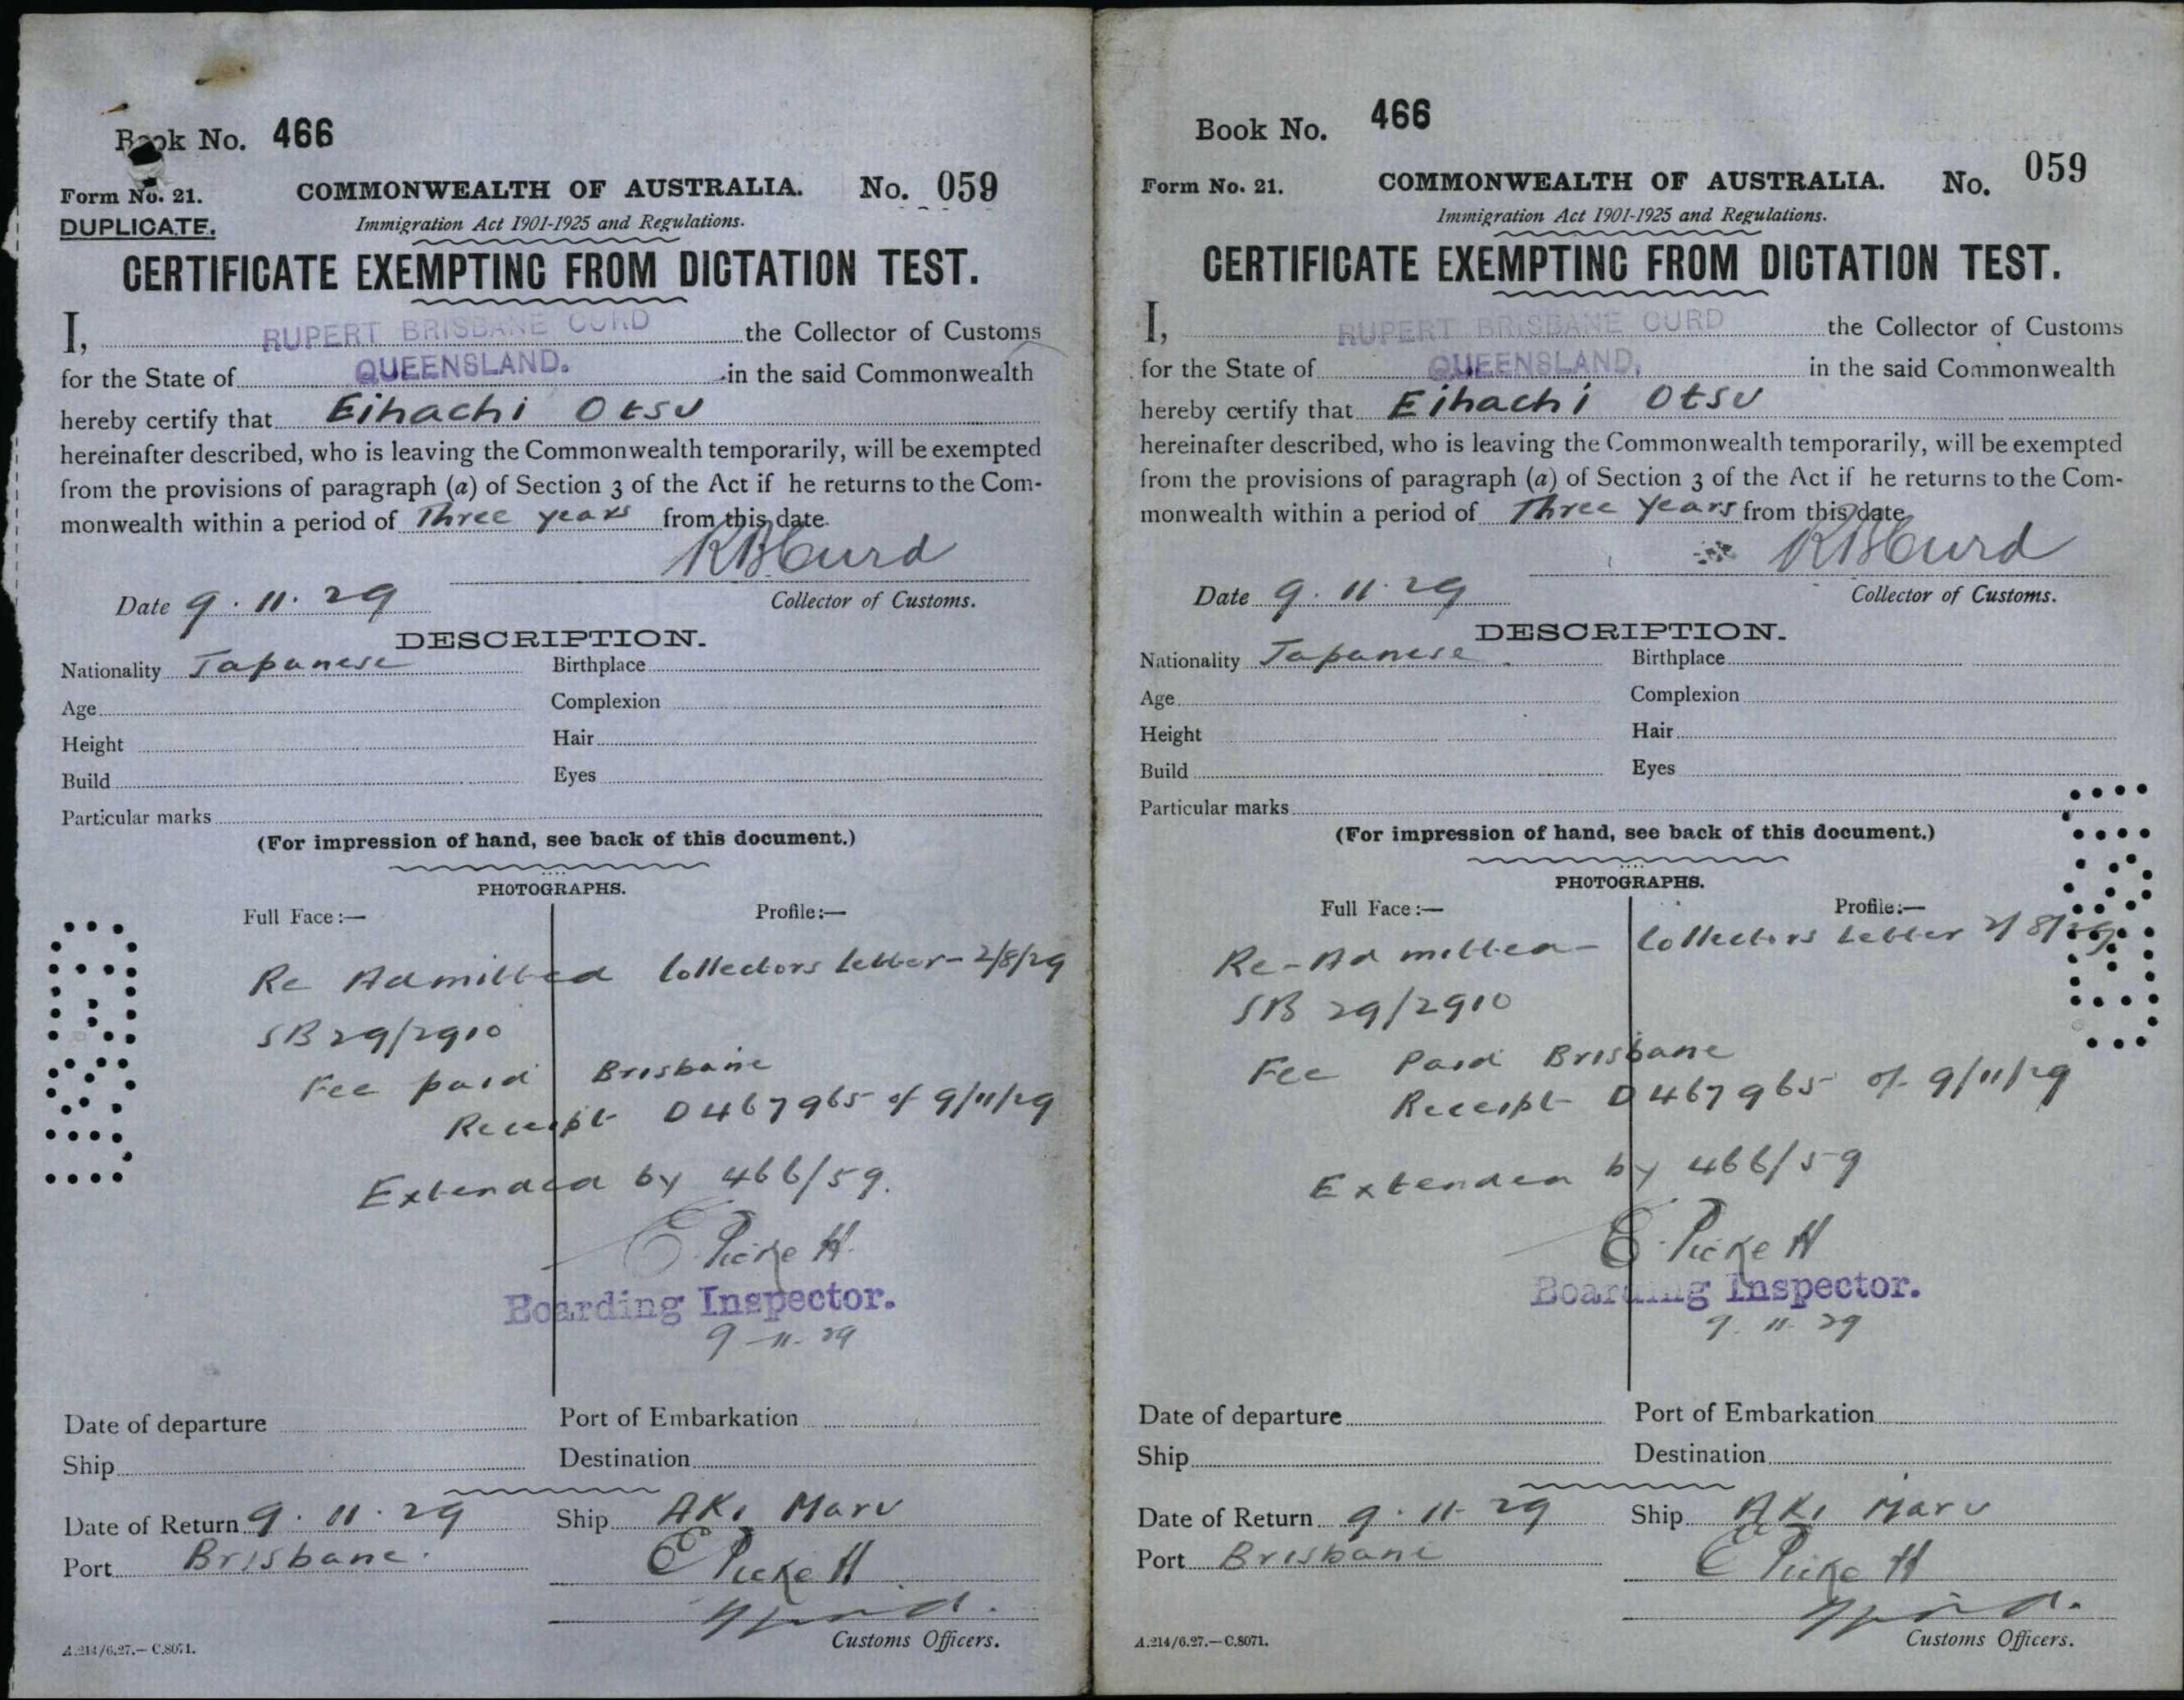 Book No. 466
Form No. 21. COMMONWEALTH OF AUSTRALIA. No. 059
DUPLICATE. Immigration Act 1901-1925 and Regulations.
CERTIFICATE EXEMPTING FROM DICTATION TEST.
I, RUPERT BRISBANE CURD the Collector of Customs
for the State of QUEENSLAND. in the said Commonwealth
hereby certify that Eihachi Otsu
hereinafter described, who is leaving the Commonwealth temporarily, will be exempted
from the provisions of paragraph (a) of Section 3 of the Act if he returns to the Com-
monwealth within a period of Three years from this date.
RBCurd
Date 9.11.29 Collector of Customs.
DESCRIPTION.
Nationality Japanese Birthplace
Age Complexion
Height Hair
Build Eyes
Particular marks
(For impression of hand, see back of this document.)
PHOTOGRAPHS.
Full Face:— Profile:—
Re Admitted Collectors Letter- 2/8/29
SB 29/2910
Fee paid Brisbane
Receipt D467965 of 9/11/29
Extended by 466/59.
E. Pickett.
Boarding Inspector.
9-11-29
Date of departure Port of Embarkation
Ship Destination
Date of Return 9.11.29 Ship AKI Maru
Port Brisbane. E Pickett
Customs Officers.
A.214/6.27.—C.8071.
Book No. 466
Form No. 21. COMMONWEALTH OF AUSTRALIA. No. 059
Immigration Act 1901-1925 and Regulations.
CERTIFICATE EXEMPTING FROM DICTATION TEST.
I, RUPERT BRISBANE CURD the Collector of Customs
for the State of QUEENSLAND. in the said Commonwealth
hereby certify that Eihachi Otsu
hereinafter described, who is leaving the Commonwealth temporarily, will be exempted
from the provisions of paragraph (a) of Section 3 of the Act if he returns to the Com-
monwealth within a period of Three Years from this date
RBCurd
Date 9.11.29 Collector of Customs.
DESCRIPTION.
Nationality Japanese Birthplace
Age Complexion
Height Hair
Build Eyes
Particular marks
(For impression of hand, see back of this document.)
PHOTOGRAPHS.
Full Face:— Profile:—
Re-Admitted- Collectors Letter 2/8/29
SB 29/2910
Fee Paid Brisbane
Receipt D467965 of 9/11/29
Extended by 466/59
E. Pickett
Boarding Inspector.
9.11.29
Date of departure Port of Embarkation
Ship Destination
Date of Return 9.11.29 Ship AKI Maru
Port Brisbane E Pickett
Customs Officers.
A.214/6.27.—C.8071.